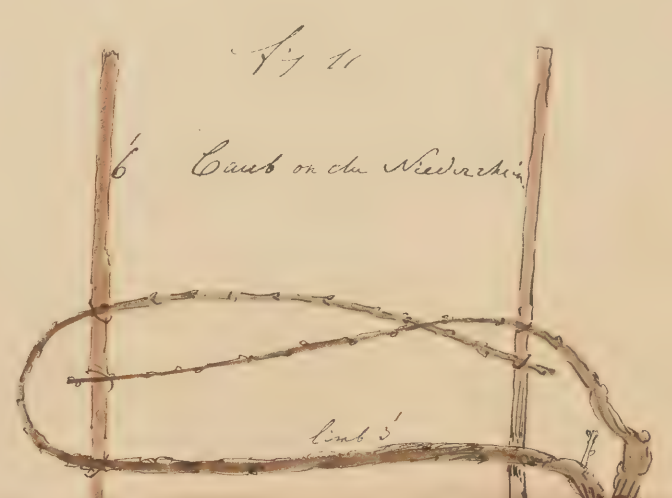 fig 11
6' Caub on the Niederrhein
limb 3'